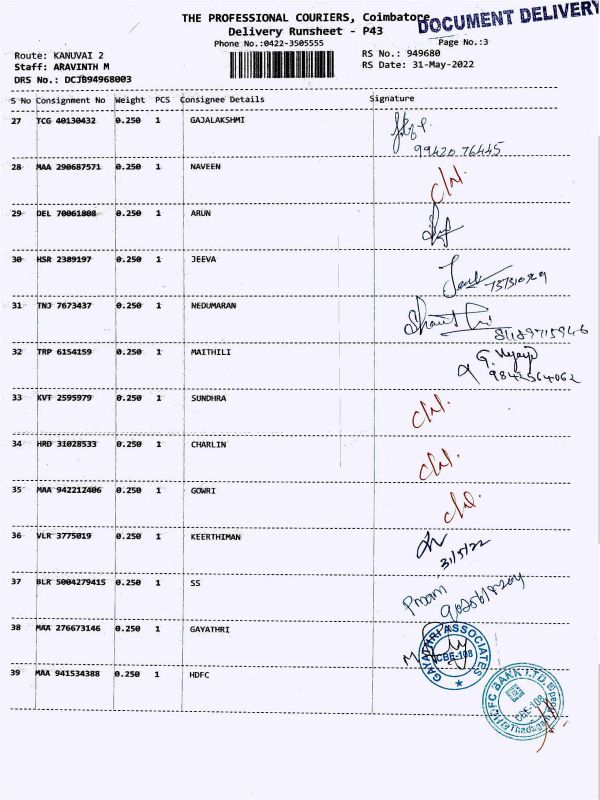 THE PROFESSIONAL COURIERS, Coimbatore
DOCUMENT DELIVERY
Delivery Runsheet - P43
Phone No.:0422-3505555
Page No.:3
Route: KANUVAI 2
RS No.: 949680
Staff: ARAVINTH M
RS Date: 31-May-2022
DRS No.: DCJB94968003
S No Consignment No Weight PCS Consignee Details Signature
27 TCG 40130432 0.250 1 GAJALAKSHMI
99420 76445
28 MAA 290687571 0.250 1 NAVEEN
29 DEL 70061808 0.250 1 ARUN
30 HSR 2389197 0.250 1 JEEVA
31 TNJ 7673437 0.250 1 NEDUMARAN
32 TRP 6154159 0.250 1 MAITHILI
9842564062
33 KVT 2595979 0.250 1 SUNDHRA
34 HRD 31028533 0.250 1 CHARLIN
35 MAA 942212406 0.250 1 GOWRI
36 VLR 3775019 0.250 1 KEERTHIMAN
31/5/22
37 BLR 5004279415 0.250 1 SS
38 MAA 276673146 0.250 1 GAYATHRI
GAYATHRI ASSOCIATES
CBE-108
39 MAA 941534388 0.250 1 HDFC
HDFC BANK LTD.
CBE-108